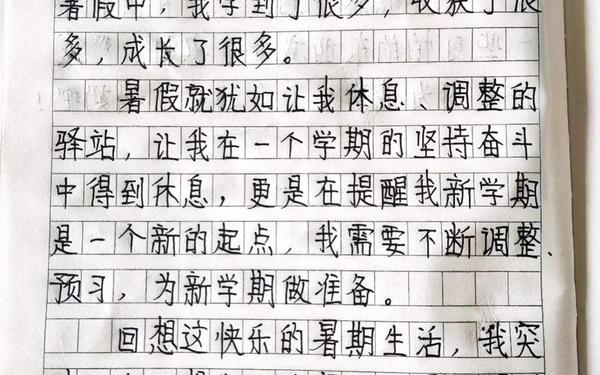 暑假中，我学到了很多，收获了很
多，成长了很多。
暑假就犹如让我休息、调整的
驿站，让我在一个学期的坚持奋斗
中得到休息，更是在提醒我新学期
是一个新的起点，我需要不断调整、
预习，为新学期做准备。
回想这快乐的暑期生活，我突